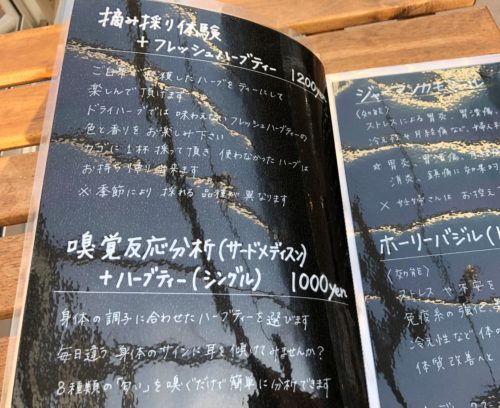 摘み採り体験
+ フレッシュハーブティー 1200yen
ご自身で収穫したハーブをティーにして
楽しんで頂けます
ドライハーブでは味わえないフレッシュハーブティーの
色と香りをお楽しみ下さい
カゴに1杯採って頂き 使わなかったハーブは
お持ち帰り出来ます
※ 季節により 採れる 品種が 異なります
嗅覚反応分析(サードメディスン)
+ハーブティー(シングル) 1000yen
身体の調子に合わせたハーブティーを選びます
毎日違う 身体のサインに耳を傾けてみませんか?
8種類の「匂い」を嗅ぐだけで簡単に分析できます
ジャーマンカモミール
〈効能〉
ストレスによる 胃炎、胃潰瘍
冷え症や月経痛など、婦人
☆ 胃炎
消炎 鎮痛に効果的
※ 妊婦さんは
ホーリーバジル
〈効能〉
ストレス や 不安を
免疫系の強化
冷え性など 体の
体質改善